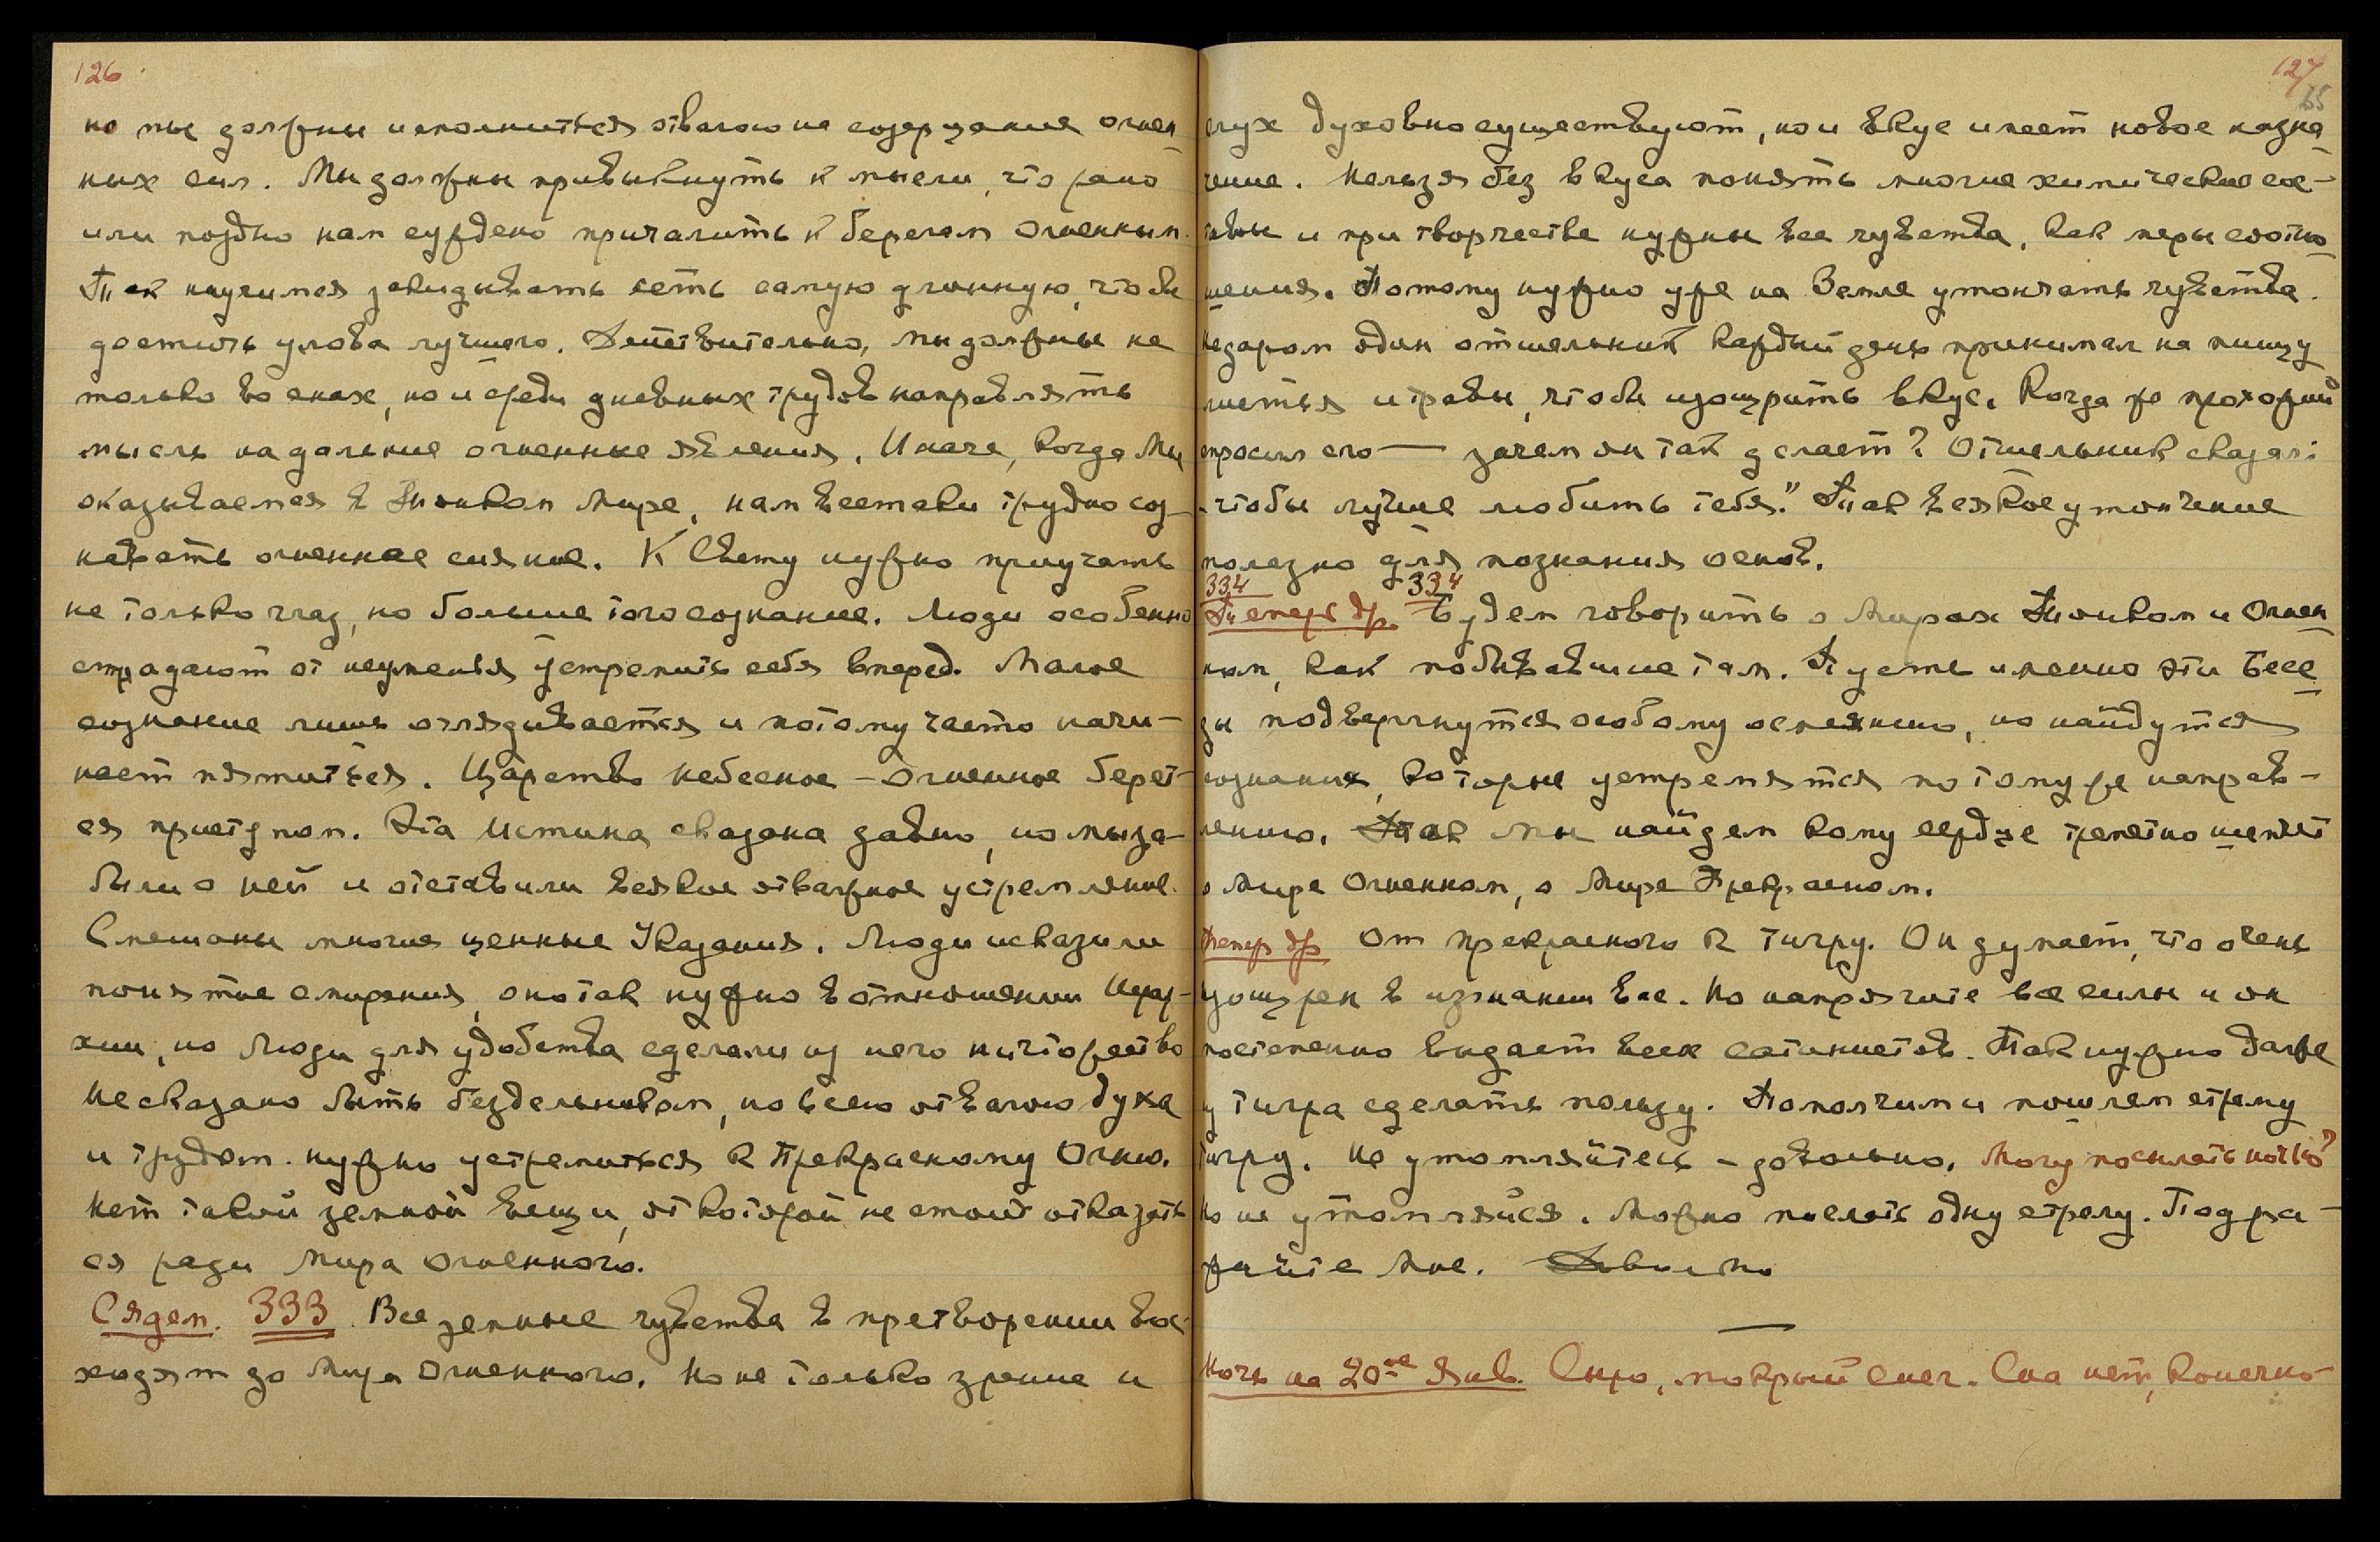 126
но мы должны исполниться отвагою на созерцание огнен
ных сил. Мы должны привыкнуть к мысли, что рано
или поздно нам суждено причалить к берегам Огненным.
Так научимся закидывать сеть самую длинную, чтобы
достичь улова лучшего. Действительно, мы должны не
только во снах, но и среди дневных трудов направлять
мысль на дальние огненные явления. Иначе, когда Мы
оказываемся в Тонком Мире, нам всетаки трудно соз-
навать огненное сияние. К Свету нужно приучать
не только глаз, но больше того сознание. Люди особенно
страдают от неуменья устремить себя вперед. Малое
сознание лишь оглядывается и потому часто начи-
нает пятиться. Царство небесное - Огненное берет-
ся приступом. Эта Истина сказана давно, но мы за-
были о ней и отставили всякое отважное устремление.
Смешаны многие ценные Указания. Люди исказили
понятие смирения, оно так нужно в отношении Иерар-
хии, но люди для удобства сделали из него ничтожество
Не сказано быть бездельником, но всею отвагою духа
и трудом нужно устремиться к Прекрасному Огню.
Нет такой земной вещи, от которой не стоит отказать
ся ради Мира Огненного.
Сядем. 333. Все земные чувства в претворении вос-
ходят до Мира Огненного. Но не только зрение и
127
65
слух духовно существуют, но и вкус имеет новое назна
чение. Нельзя без вкуса понять многие химические сос-
тавы и при творчестве нужны все чувства, как меры соотно
шения. Потому нужно уже на Земле утончать чувства.
Недаром один отшельник каждый день принимал на пищу
листья и травы, чтобы изощрить вкус. Когда же прохожий
спросил его — зачем он так делает? Отшельник сказал:
-чтобы лучше любить тебя." Так всякое утончение
полезно для познания основ.
334 334
Теперь др. Будем говорить о Мирах Тонком и Огнен
ном, как побывавшие там. Пусть именно эти Бесе
ды подвергнутся особому осмеянию, но найдутся
сознания, которые устремятся по тому же направ-
лению. Так мы найдем кому сердце трепетно шепчет
о Мире Огненном, о Мире Прекрасном.
Тепер др. От прекрасного к тигру. Он думает, что очень
изощрен в изгнании вас. Но напрягите все силы и он
постепенно выдаст всех сатанистов. Так нужно даже
у тигра сделать пользу. Помолчим и пошлем стрелу
тигру. Не утомляйтесь - довольно. Могу посылать ночью?
Но не утомляйся. Можно послать одну стрелу. Подра-
жайте Мне. Довольно
Ночь на 20ое Янв. Сыро, мокрый снег. Сна нет, конечно-